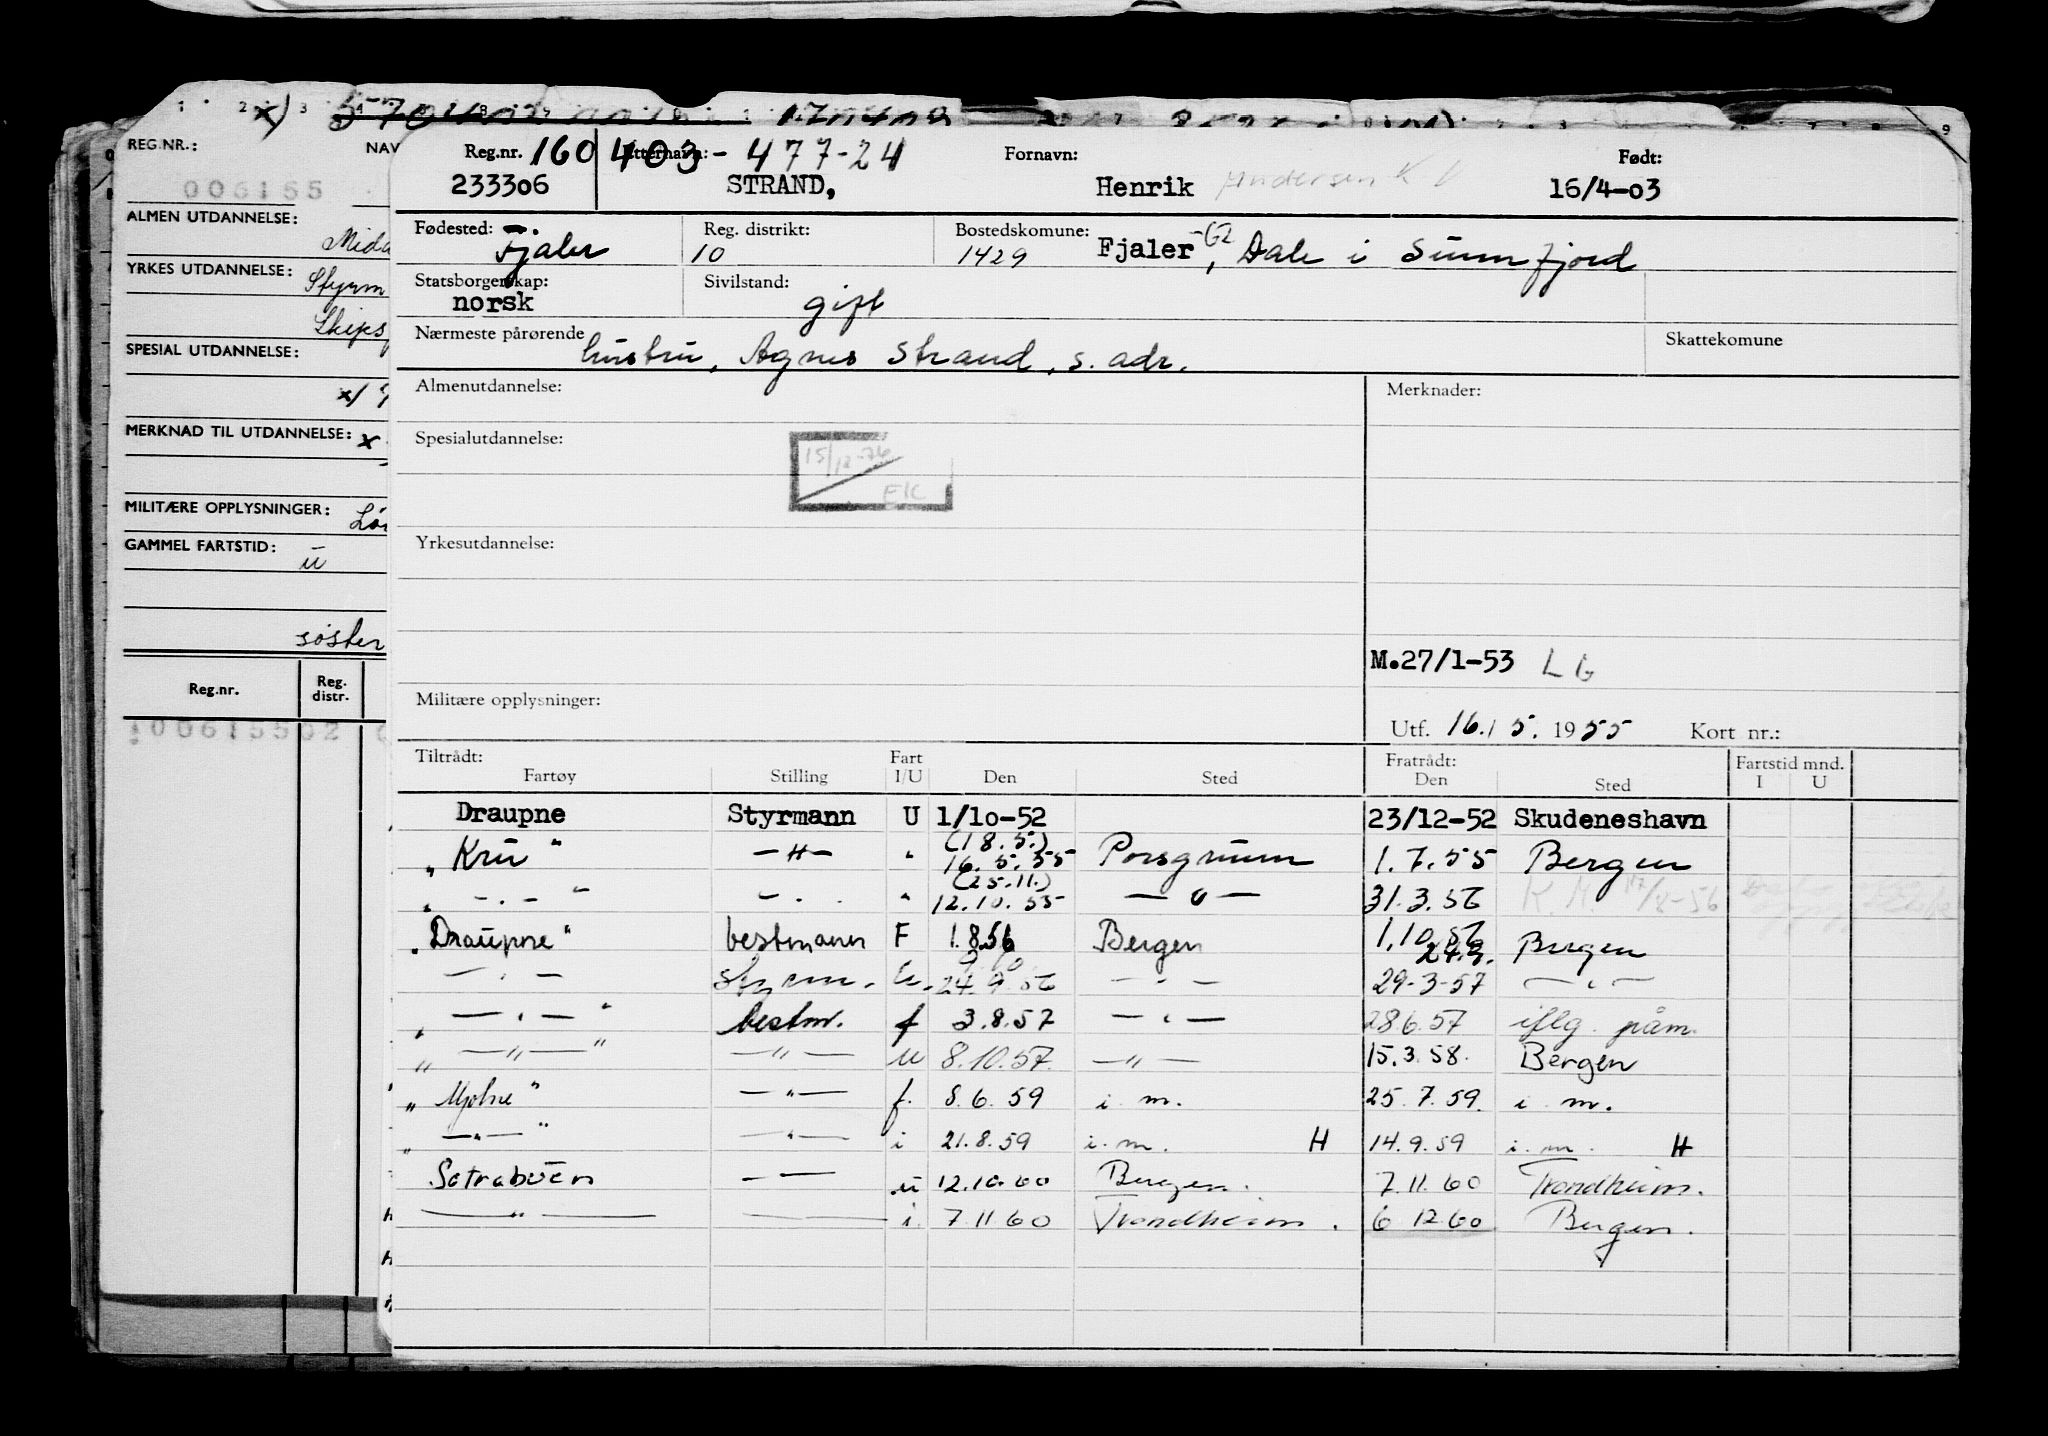 REG.NR.:
NAV
006155
ALMEN UTDANNELSE:
YRKES UTDANNELSE:
Styrm
Skips
SPESIAL UTDANNELSE:
MERKNAD TIL UTDANNELSE: x
MILITÆRE OPPLYSNINGER:
GAMMEL FARTSTID:
u
søster
Reg.nr. Reg. distr.
Reg.nr. 160403-477-24 Etternavn: Fornavn: Født:
233306 STRAND, Henrik 16/4-03
Fødested: Fjaler Reg. distrikt: 10 Bostedskomune: 1429 Fjaler, Dale i Sunnfjord
Statsborgerskap: norsk Sivilstand: gift
Nærmeste pårørende hustru, Agnes Strand, s. adr. Skattekomune
Almenutdannelse: Merknader:
Spesialutdannelse:
15/12-76
EK
Yrkesutdannelse:
M.27/1-53 LG
Militære opplysninger:
Utf. 16./5. 1955 Kort nr.:
Tiltrådt: Fart Fratrådt: Fartstid mnd.
Fartøy Stilling I/U Den Sted Den Sted I U
Draupne Styrmann U 1/10-52 23/12-52 Skudeneshavn
(18.5.)
"Kru" —"— " 16.5.55 Porsgrunn 1.7.55 Bergen
(25.11.)
" —.— " —.— " 12.10.55 —"— 31.3.56 K.M. 17/8-56
"Draupne" bestmann F 1.8.56 Bergen 1.10.56 Bergen
24.9.
—"— styrm. u. 24.9.56 —"— 29-3-57 —"—
" —"— " bestm. f 3.8.57 —"— 28.6.57 iflg. påm.
" —"— " —"— u 8.10.57 —"— 15.3.58. Bergen
"Mjølne" —"— f. 8.6.59 i.m. 25.7.59. i.m.
" —"— " —"— i 21.8.59 i.m. H 14.9.59 i.m. H
Sotrabuen —"— u 12.10.60 Bergen. 7.11.60 Trondheim.
—"— —— i. 7.11.60 Trondheim. 6.12.60 Bergen.